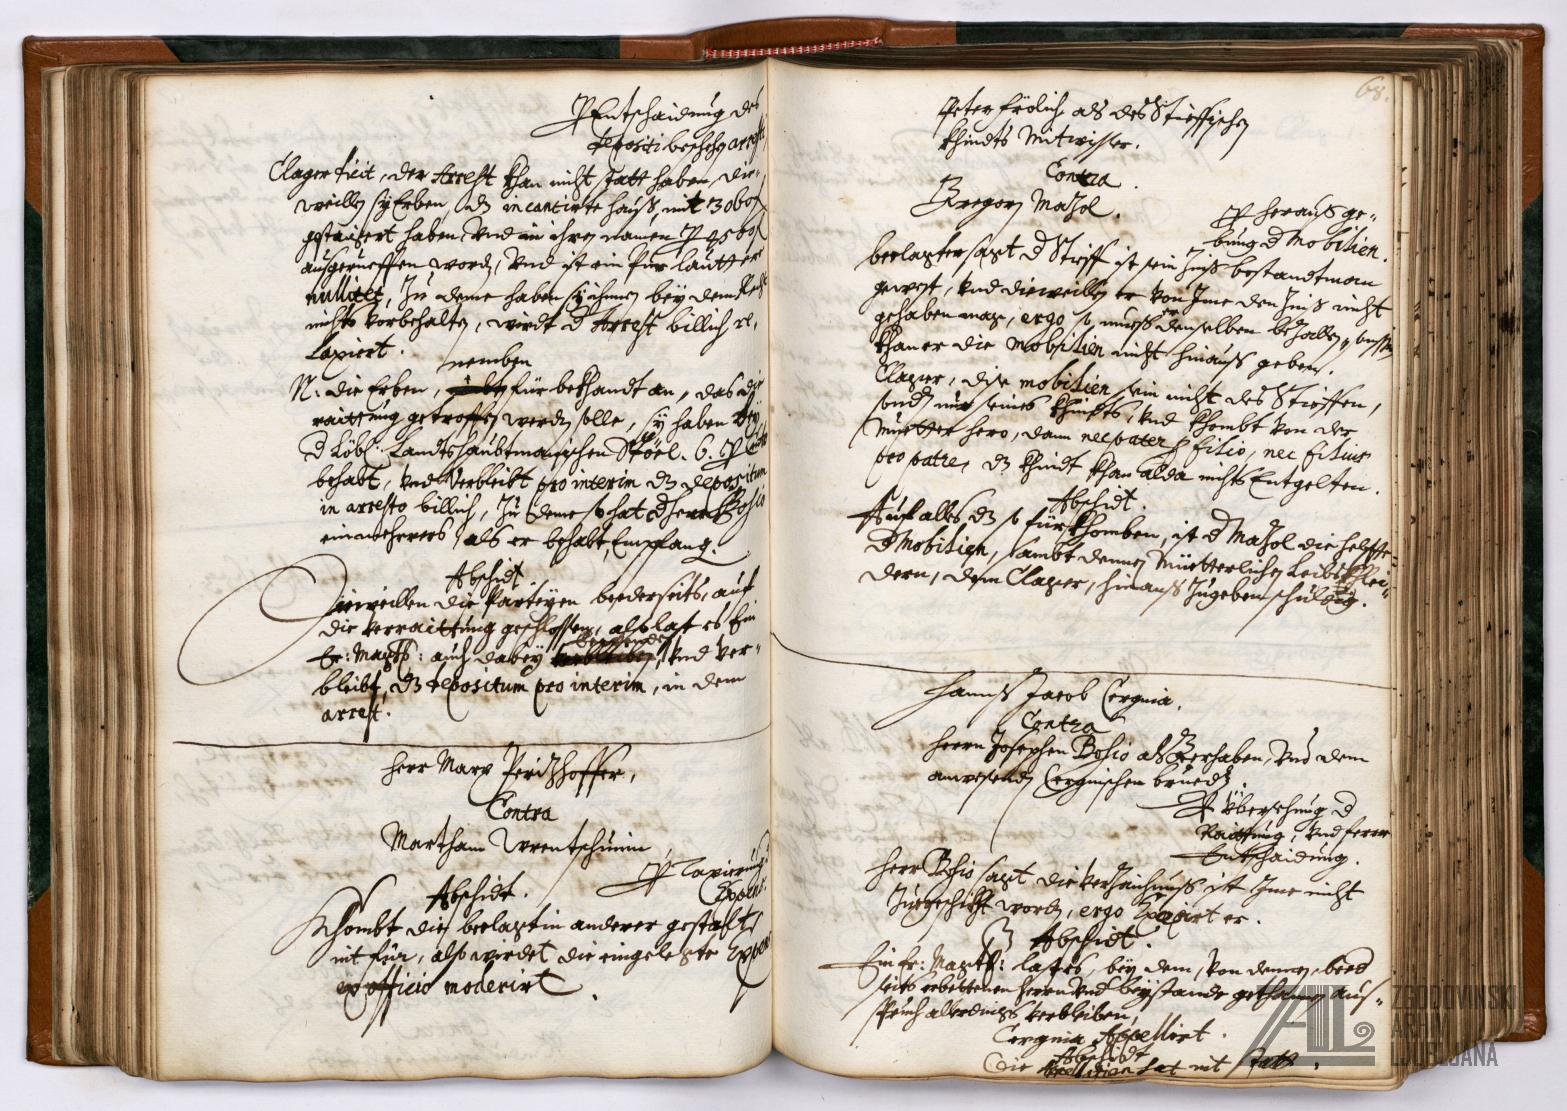 Pr Entschaidung des
depositi beschehen arrests
Clager dicit, der Arrest khan nicht statt haben, die-
weillen sy Erben dz incantirte hauß, mit
gstaigert haben, und in ihren namen
ausgerueffen worden, und ist ein pur lautter
nullitet, Zu deme haben sy ihnen bey dem
nichts vorbehalten, wirdt d Arrest billich re-
laxiert.
nemben
N: die Erben, für bekhandt an, das die
raittung getroffen werden solle, sy haben bey
d Löbl: Landtshaubtmanischen Stöel. 6.
behabt, und verbleibt pro interim dz depositum
in arresto billich, Zu deme so hat d herr Bosio
ein mehrers als er behabt, Empfang.
Abschidt
Dieweillen die Partheyen beederseits, auf
die verraittung geschlossen, also last es Ein
Er: Magts: auch dabey bewenden, und ver-
bleibt, dz depositum pro interim, in dem
arrest.
Herr Marx
Contra
Martham
Pr Taxierung
Expens:
Abschidt.
Khombt die beclagtin anderer gestalt
nit für, also werdet die eingelegte Expens
ex officio moderirt.
68.
Peter Frölich als des Stieffischen
khindts Mitwisser.
Contra.
Gregorn Mazol.
Pr heraus ge-
bung d Mobilien.
beclagter sagt d Stieff ist sein Zinß bestandtman
gewest, und dieweillen er von Ime den Zinß nicht
gehaben mag, ergo so mueß er denselben bezallen,
khan er die Mobilien nicht hinauß geben.
Clager, dise mobilien sein nicht des Stieffen,
sondern nur seines khindts, und khombt von der
Muetter hero, dann nec pater pro filio, nec filius
pro patre, dz khindt khan alda nichts Entgelten.
Abschidt.
Auf alles dz so für khomben, ist d Mazol die helffte
d Mobilien, sambt denen Müetterlichen Leibs khlei-
dern, dem Clager, hinauß zugeben schuldig.
Hannß Jacob Cergnia.
Contra
Herrn Josephen Bosio als Gerhaben, und dem
anwesenden Cergnischen bruedern.
Pr übersehung d
Raittung, und ferrer
Entschaidung.
Herr Bosio sagt die verzaichnuß ist Ime nicht
Zuegeschickt worden, ergo Expirt er.
Abschidt.
Ein Er: Magts: last es, bey dem, von denen beed
seits erbettenen Herrn und beystandt gethanen aus-
spruch allerdings verbleiben,
Cergnia Appellirt.
Abschidt
Die Appellation hat nit statt.
ZGODOVINSKI
ARHIV
LJUBLJANA